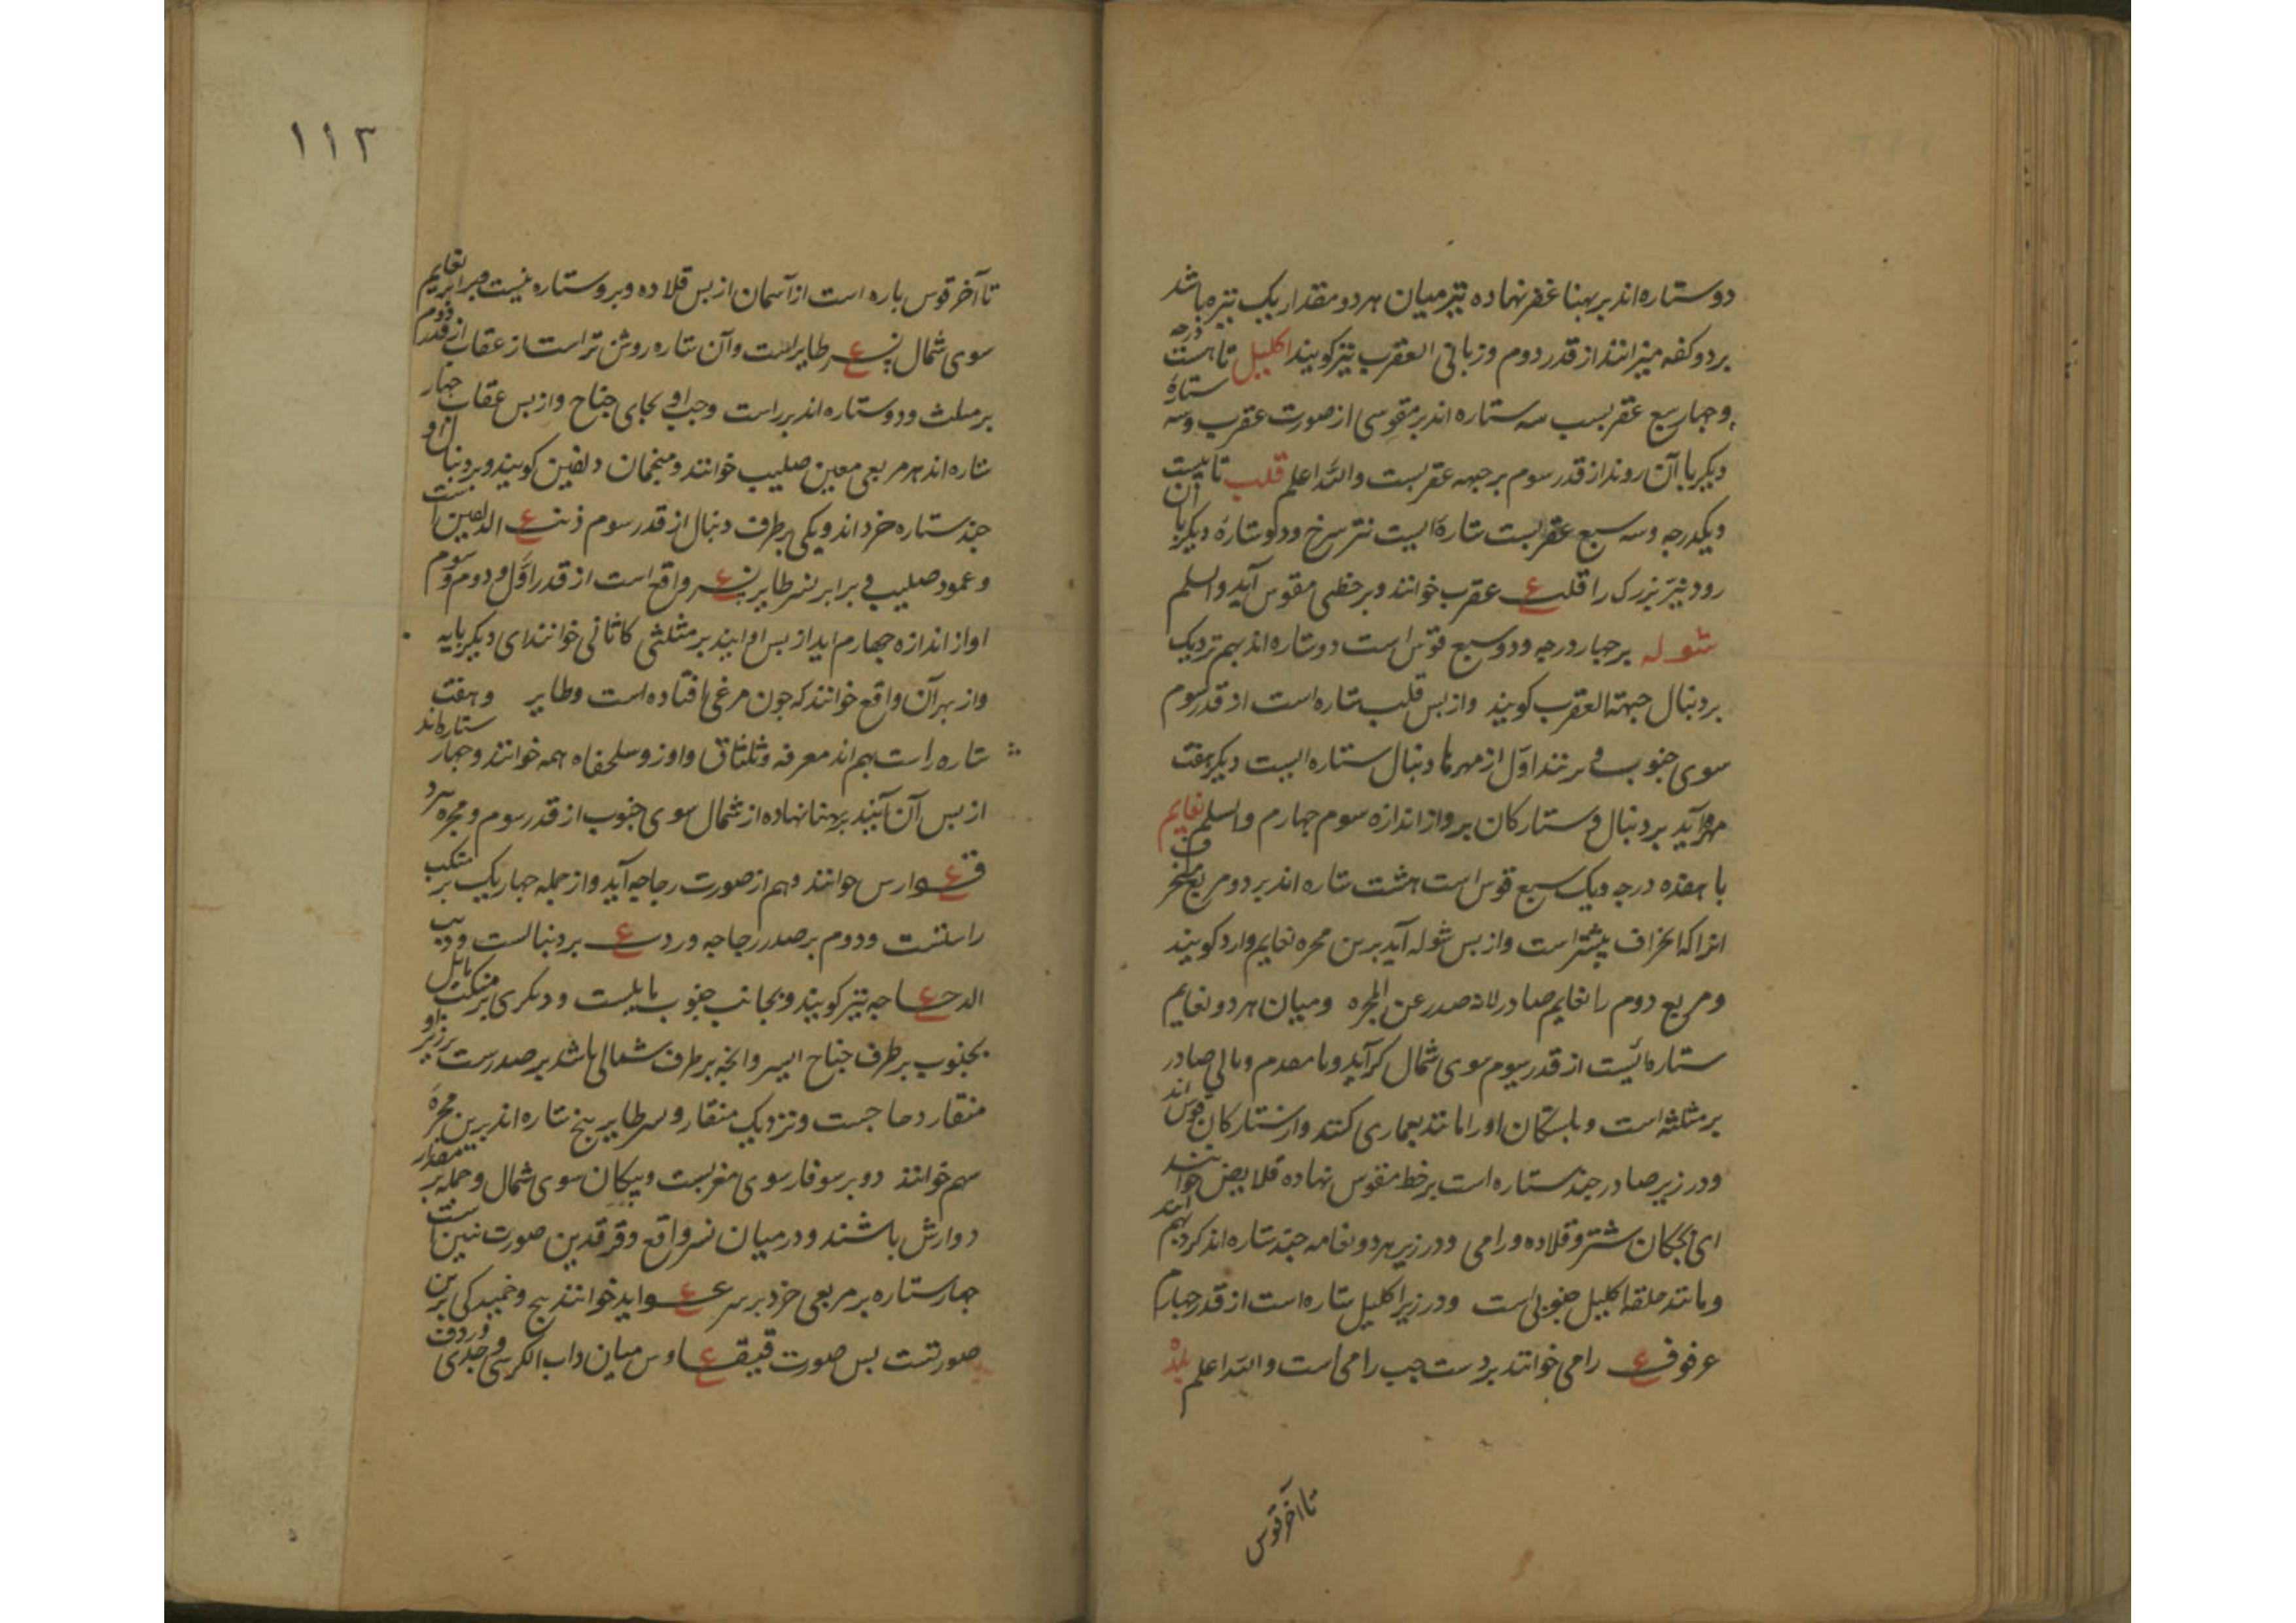 دو ستاره اند بر پهنا غفر نهاده تیز میان هر دو مقدار یک نیزه باشد
بر دو کفه میزانند از قدر دوم و زبانی العقرب نیز کویند اکلیل تا هست درجه
و چهار سبع عقربست سه ستاره اند بر مقوسی از صورت عقرب و سه ستارهٔ
دیکر با آن روند از قدر سوم بر جبهه عقربست والله اعلم قلب تا بیست
دیکدرجه و سه سبع عقربست ستارهٔ ایست سرخ و دو ستارهٔ دیکر با آن
رود نیز بزرک را قلب عقرب خوانند و بر خطی مقوس آید والسلم
شوله بر چهار درجه و دو سبع قوس است دو ستاره اند بهم نزدیک
بر دنبال جبهة العقرب کویند و از پس قلب ستاره است از قدر سوم
سوی جنوب اول از مهرها دنبال ستاره ایست دیکر هفت
مهره آید بر دنبال و ستارکان بر و از اندازه سوم چهارم والسلم نعایم
با هفده درجه و یک سبع قوس است هشت ستاره اند بر دو مربع منحرف
انرا که انحراف بیشتر است و از پس شوله آید برین مجره نعایم وارد کویند
و مربع دوم را نعایم صادر لانه صدر عن المجره و میان هر دو نعایم
ستاره ئیست از قدر سوم سوی شمال کر آید و با مقدم و بالی صادر
بر مثلثه است و بلستکان او را مانند بعماری کنند و از ستارکان قوس اند
و در زیر صادر چند ستاره است بر خط مقوس نهاده قلایص خوانند
ای بچکان شتر و قلاده و رامی و در زیر هر دو نعامه چند ستاره اند کرد بهم آیند
و مانند حلقه اکلیل جنوبی است و در زیر اکلیل ستاره است از قدر چهارم
عرقوب رامی خوانند بر دست چپ رامی است والله اعلم بلده
تا آخر قوس
۱۱۳
تا آخر قوس باره است از آسمان از پس قلاده و برو ستاره نیست و برابر نعایم
سوی شمال نسر طایر است و آن ستاره روشن تر است از عقاب از قدر دوم
بر مثلث و دو ستاره اند بر راست و چپ او بجای جناح و از پس عقاب چهار
ستاره اند بر مربعی معین صلیب خوانند و منجمان دلفین کویند و بر دنبال او
چند ستاره خرد اند و یکی بر طرف دنبال از قدر سوم ذنب الدلفین است
و عمود صلیب و برابر نسر طایر نسر واقع است از قدر اول و دوم و سوم
او از اندازه چهارم آید از پس او آیند بر مثلثی کاثافی خوانند ای دیکر بایه
و از بهر آن واقع خوانند که چون مرغی افتاده است و طایر و هفت
ستاره راست بهم اند معرفه و ثلثاق و اوز و سلحفاه همه خوانند و چهار ستاره اند
از پس آن آیند بر پهنا نهاده از شمال سوی جنوب از قدر سوم و مجره برد
فوارس خوانند و هم از صورت دجاجه آید و از جمله چهار یک بر منکب
راستست و دوم بر صدر دجاجه و ردف بر دنبالست و ذنب
الدجاجه نیز کویند و بجانب جنوب مایلست و دیکری بر منکب مایل
بجنوب بر طرف جناح ایسر و آنچه بر طرف شمالی باشد بر صدرست بر زبر او
منقار دجاجست و نزدیک منقار و سر طایر پنج ستاره اند برین مجره
سهم خوانند دو بر سوفار سوی مغربست و پیکان سوی شمال و جمله بر مقدار
دوارش باشند و در میان نسر واقع و فرقدین صورت تنین است
چهار ستاره بر مربعی خرد بر سر عواید خوانند پیچ و خمیدکی برین
صورتست پس صورت قیقاوس میان ذات الکرسی و جدی و ردف